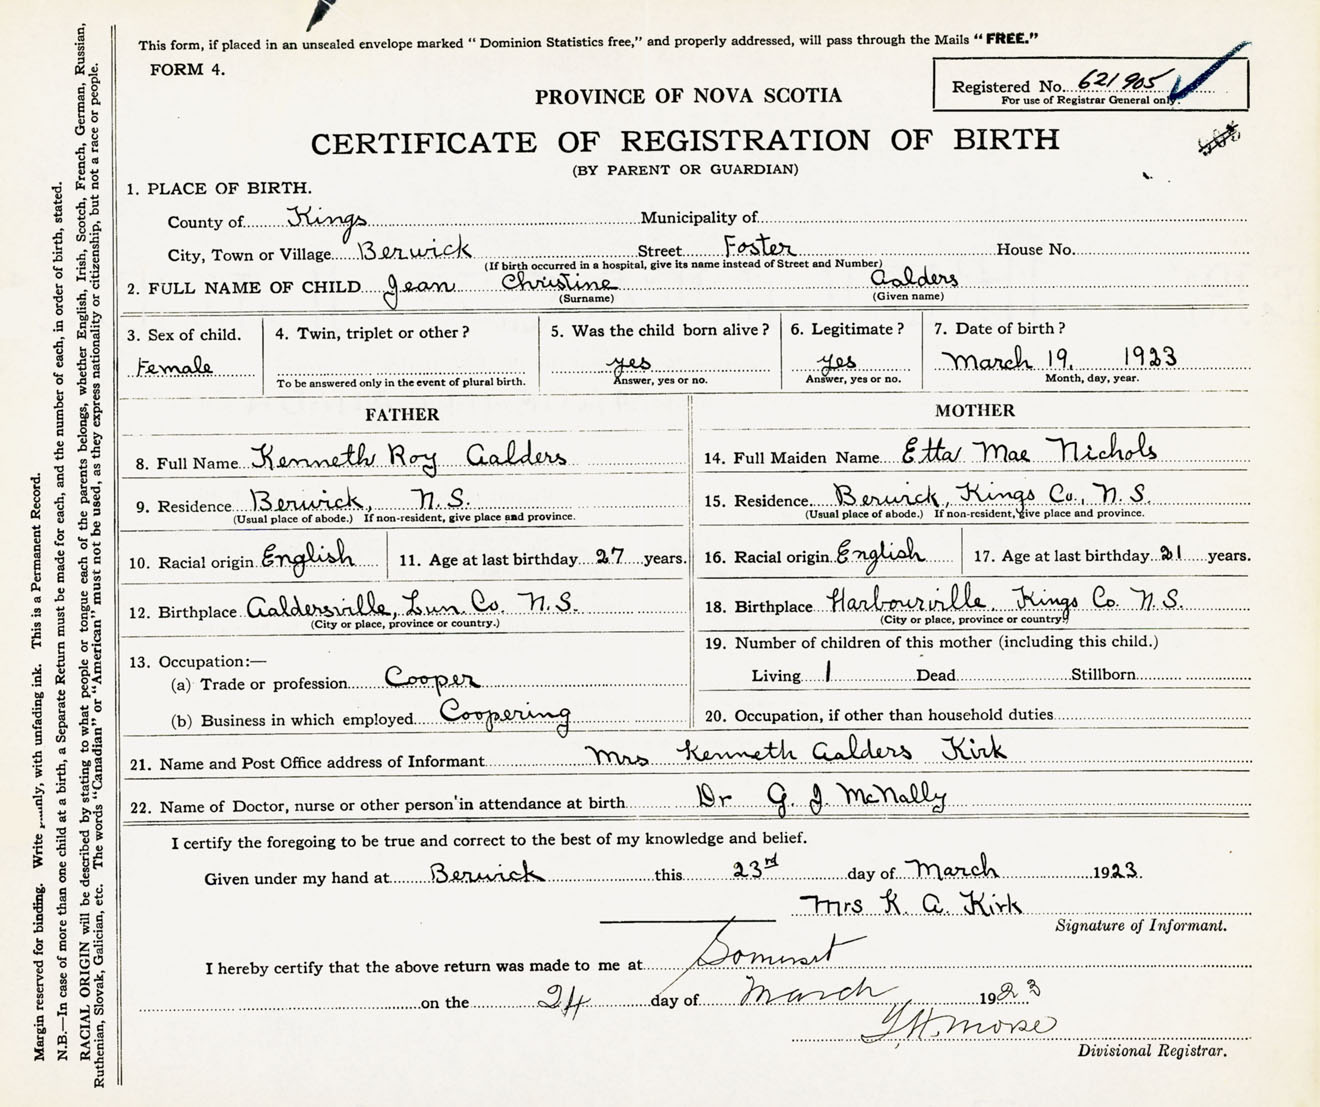 This form, if placed in an unsealed envelope marked " Dominion Statistics free," and properly addressed, will pass through the Mails "FREE."
FORM 4.
Registered No. 621905
For use of Registrar General only.
PROVINCE OF NOVA SCOTIA
CERTIFICATE OF REGISTRATION OF BIRTH
(BY PARENT OR GUARDIAN)
1. PLACE OF BIRTH.
County of Kings Municipality of
City, Town or Village Berwick Street Foster House No.
(If birth occurred in a hospital, give its name instead of Street and Number)
2. FULL NAME OF CHILD Jean Christine Aalders
(Surname) (Given name)
3. Sex of child. 4. Twin, triplet or other? 5. Was the child born alive? 6. Legitimate? 7. Date of birth?
Female yes yes March 19, 1923
To be answered only in the event of plural birth. Answer, yes or no. Answer, yes or no. Month, day, year.
FATHER MOTHER
8. Full Name Kenneth Roy Aalders 14. Full Maiden Name Etta Mae Nichols
9. Residence Berwick, N.S. 15. Residence Berwick, Kings Co., N.S.
(Usual place of abode.) If non-resident, give place and province. (Usual place of abode.) If non-resident, give place and province.
10. Racial origin English 11. Age at last birthday 27 years. 16. Racial origin English 17. Age at last birthday 21 years.
12. Birthplace Aaldersville, Lun. Co. N.S. 18. Birthplace Harbourville, Kings Co. N.S.
(City or place, province or country.) (City or place, province or country)
13. Occupation:— 19. Number of children of this mother (including this child.)
(a) Trade or profession Cooper Living 1 Dead Stillborn
(b) Business in which employed Coopering 20. Occupation, if other than household duties
21. Name and Post Office address of Informant Mrs Kenneth Aalders Kirk
22. Name of Doctor, nurse or other person in attendance at birth Dr G. J. McNally
I certify the foregoing to be true and correct to the best of my knowledge and belief.
Given under my hand at Berwick this 23rd day of March 1923.
Mrs K. A. Kirk
Signature of Informant.
I hereby certify that the above return was made to me at Somerset
on the 24 day of March 1923
Morse
Divisional Registrar.
Margin reserved for binding. Write only, with unfading ink. This is a Permanent Record.
N.B.—In case of more than one child at a birth, a Separate Return must be made for each, and the number of each, in order of birth, stated.
RACIAL ORIGIN will be described by stating to what people or tongue each of the parents belongs, whether English, Irish, Scotch, French, German, Russian,
Ruthenian, Slovak, Galician, etc. The words "Canadian" or "American" must not be used, as they express nationality or citizenship, but not a race or people.